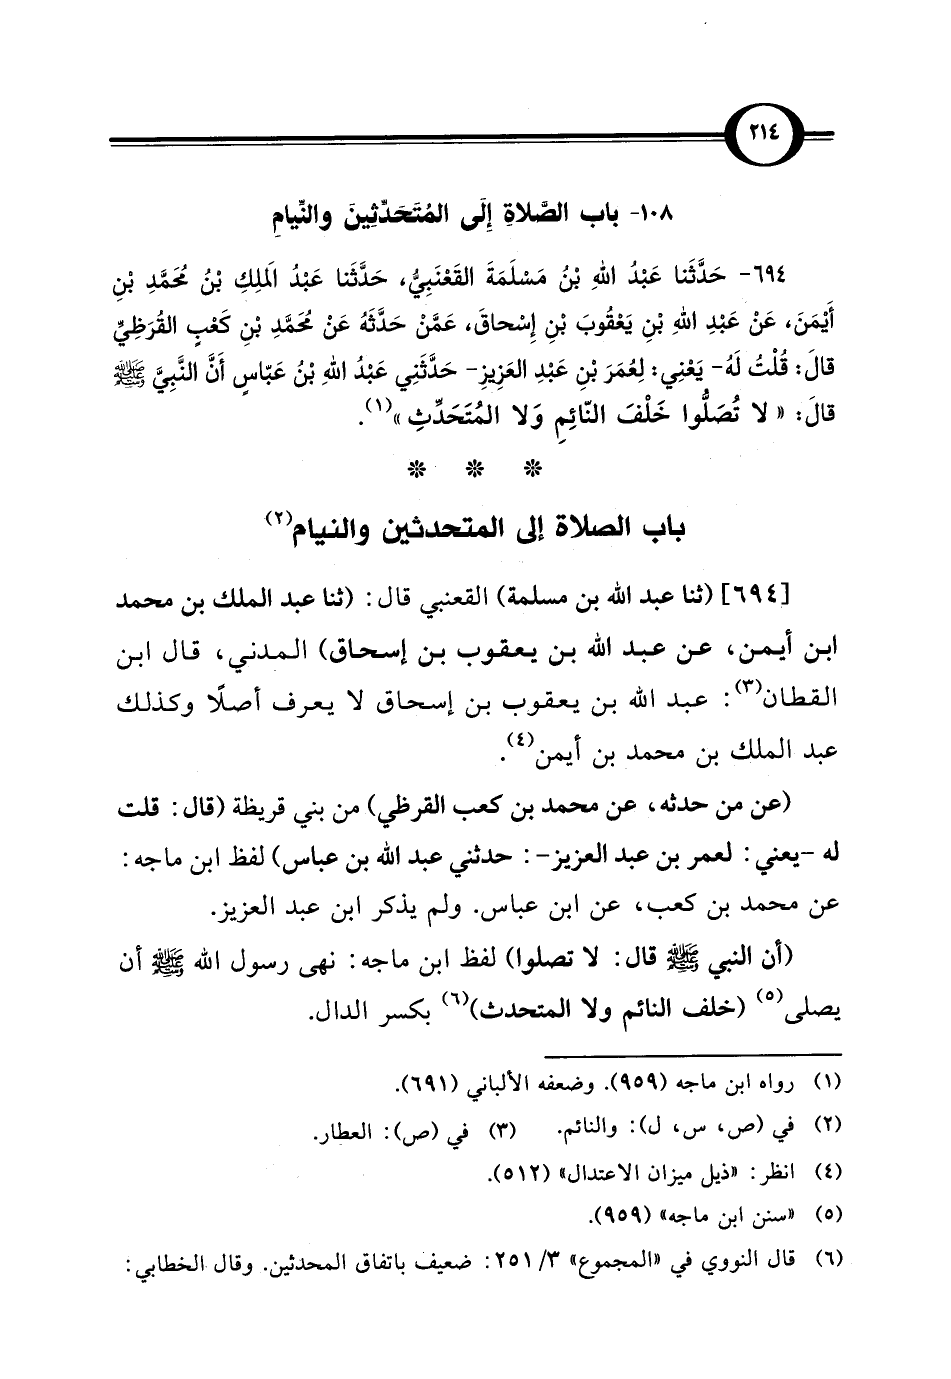 ٢١٤
١٠٨- باب الصَّلاةِ إِلَى المُتَحَدِّثِينَ والنِّيامِ
٦٩٤- حَدَّثَنا عَبْدُ اللهِ بْنُ مَسْلَمَةَ القَعْنَبِيُّ، حَدَّثَنا عَبْدُ الَملِكِ بْنُ مُحَمَّدِ بْنِ
أَيْمَنَ، عَنْ عَبْدِ اللهِ بْنِ يَعْقُوبَ بْنِ إِسْحاقَ، عَمَّنْ حَدَّثَهُ عَنْ مُحَمَّدِ بْنِ كَعْبٍ القُرَظِيِّ
قالَ: قُلْتُ لَهُ- يَعْنِي: لِعُمَرَ بْنِ عَبْدِ العَزِيزِ- حَدَّثَنِي عَبْدُ اللهِ بْنُ عَبّاسٍ أَنَّ النَّبِيَّ ﷺ
قالَ: « لا تُصَلُّوا خَلْفَ النّائِمِ وَلا المُتَحَدِّثِ »(١).
* * *
باب الصلاة إلى المتحدثين والنيام(٢)
[٦٩٤] (ثنا عبد الله بن مسلمة) القعنبي قال: (ثنا عبد الملك بن محمد
ابن أيمن، عن عبد الله بن يعقوب بن إسحاق) المدني، قال ابن
القطان(٣): عبد الله بن يعقوب بن إسحاق لا يعرف أصلًا وكذلك
عبد الملك بن محمد بن أيمن(٤).
(عن من حدثه، عن محمد بن كعب القرظي) من بني قريظة (قال: قلت
له -يعني: لعمر بن عبد العزيز-: حدثني عبد الله بن عباس) لفظ ابن ماجه:
عن محمد بن كعب، عن ابن عباس. ولم يذكر ابن عبد العزيز.
(أن النبي ﷺ قال: لا تصلوا) لفظ ابن ماجه: نهى رسول الله ﷺ أن
يصلى(٥) (خلف النائم ولا المتحدث)(٦) بكسر الدال.
(١) رواه ابن ماجه (٩٥٩). وضعفه الألباني (٦٩١).
(٢) في (ص، س، ل): والنائم. (٣) في (ص): العطار.
(٤) انظر: «ذيل ميزان الاعتدال» (٥١٢).
(٥) «سنن ابن ماجه» (٩٥٩).
(٦) قال النووي في «المجموع» ٣/ ٢٥١: ضعيف باتفاق المحدثين. وقال الخطابي: